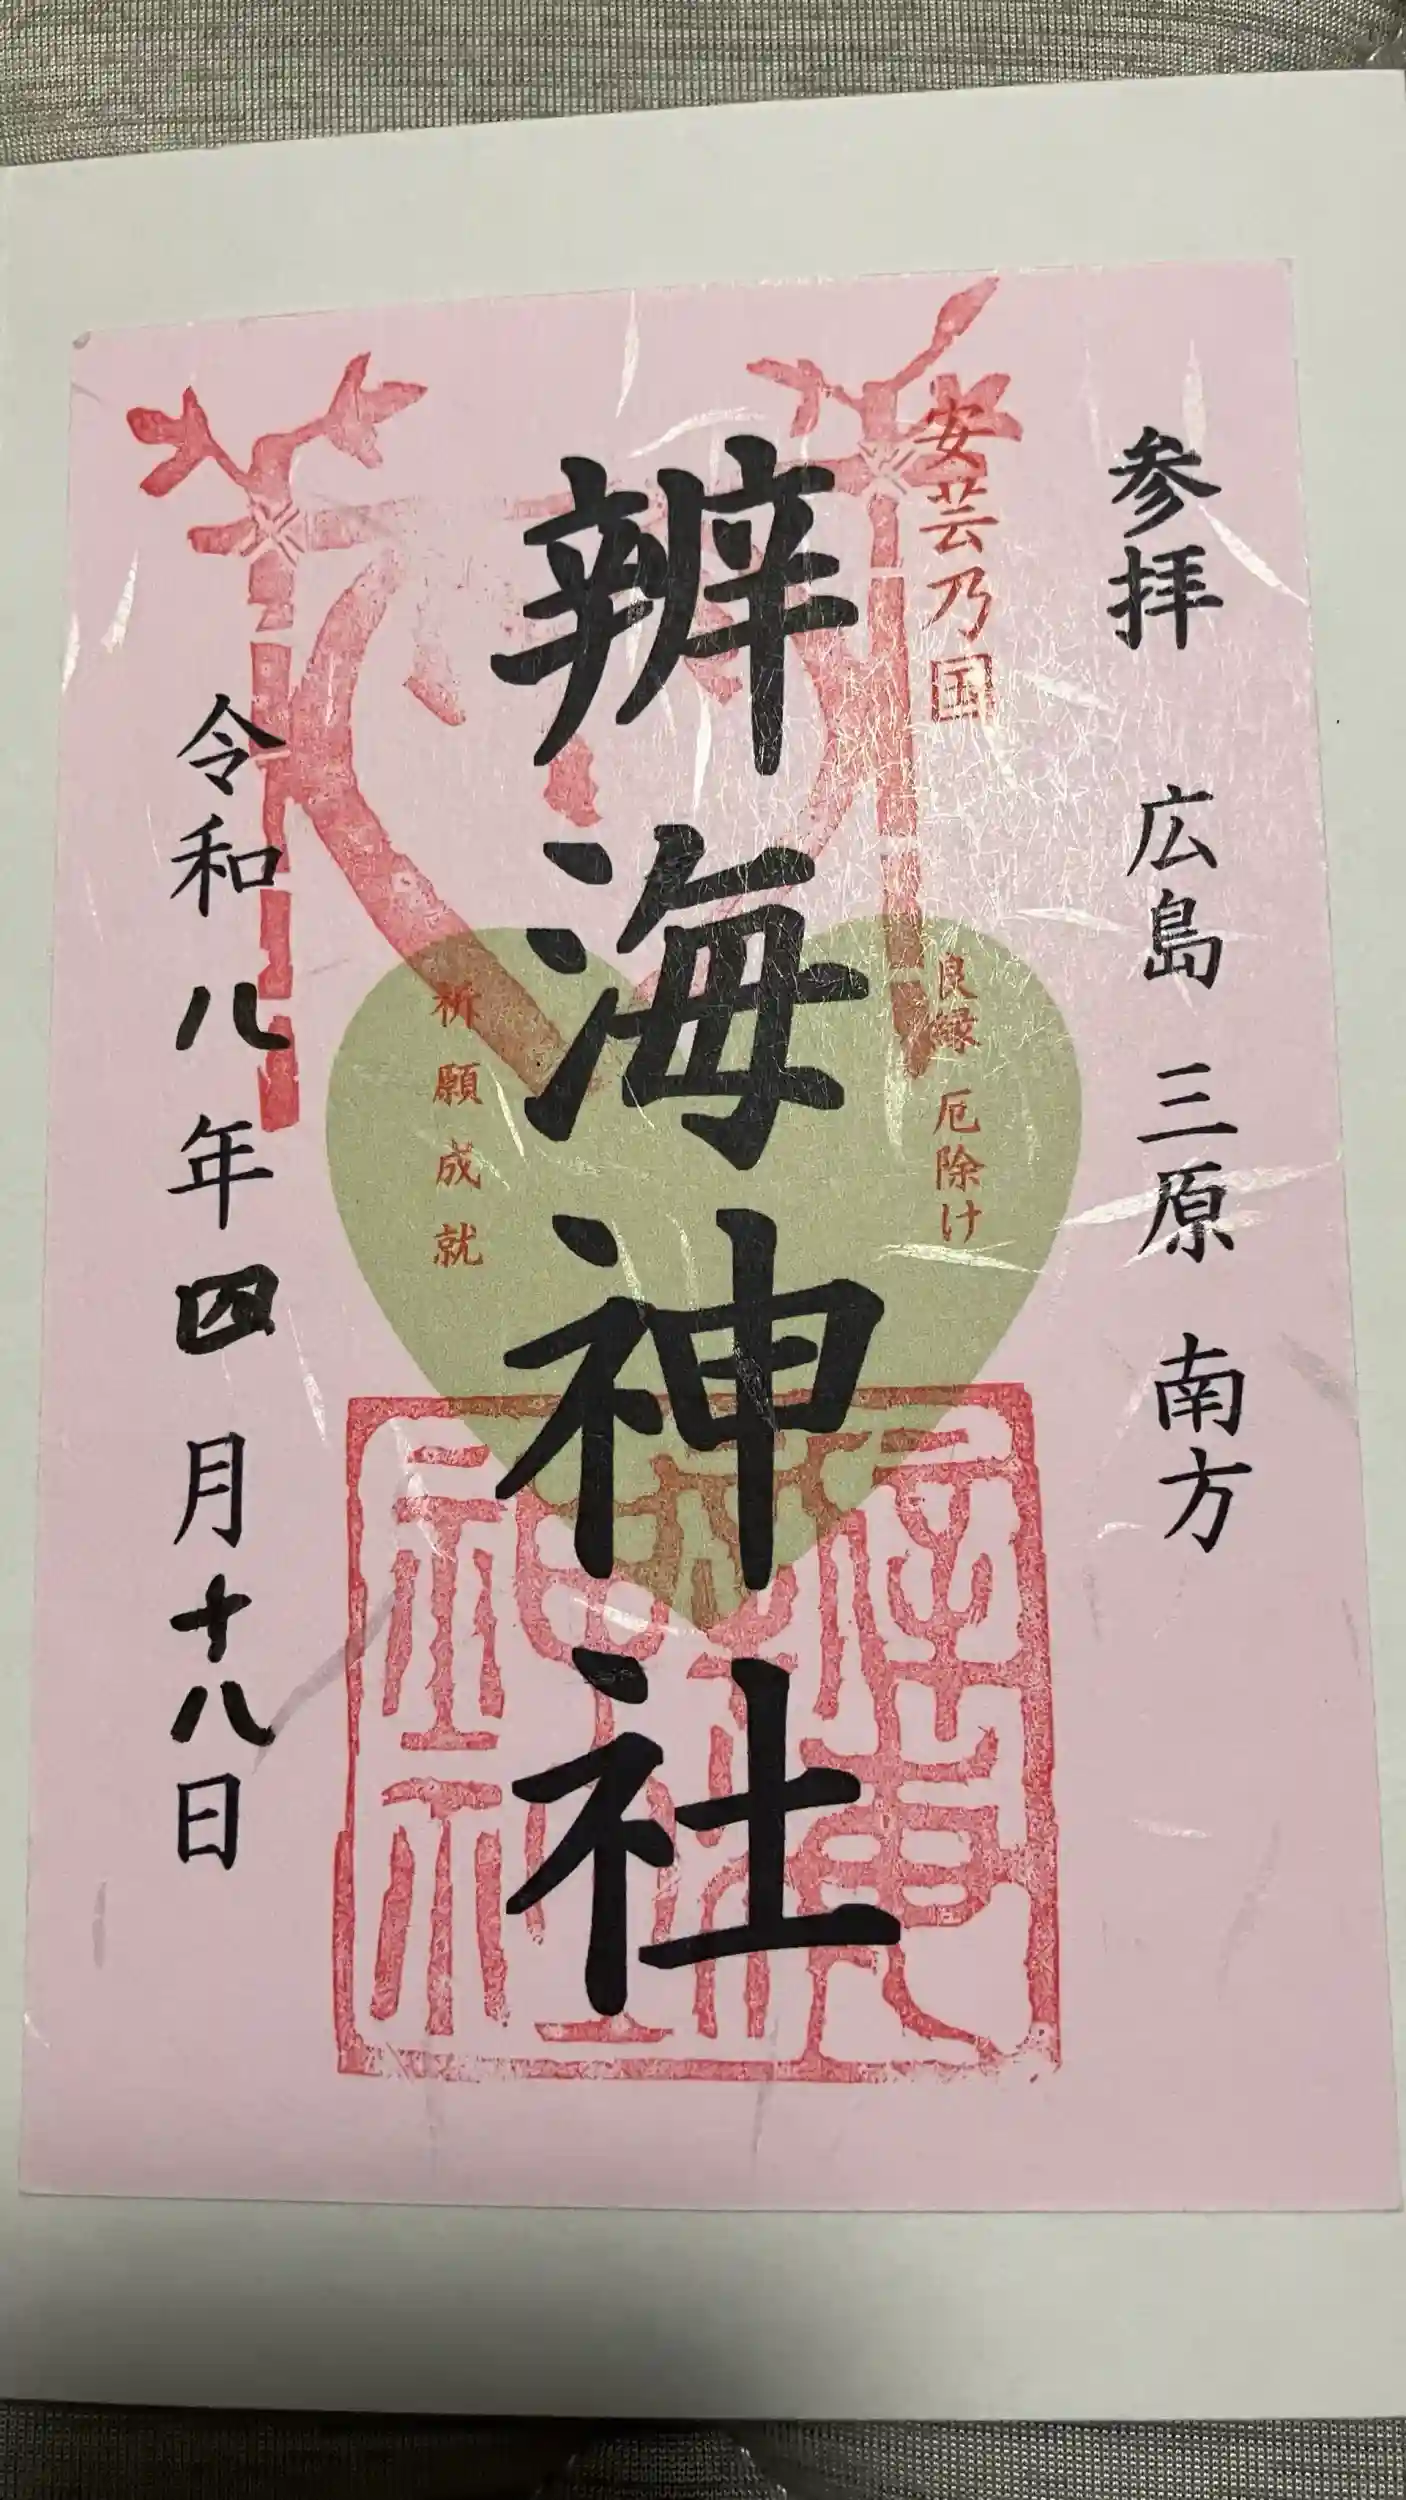 参拝 広島 三原 南方
安芸乃国
良縁 厄除け
辨海神社
祈願成就
令和八年四月十八日